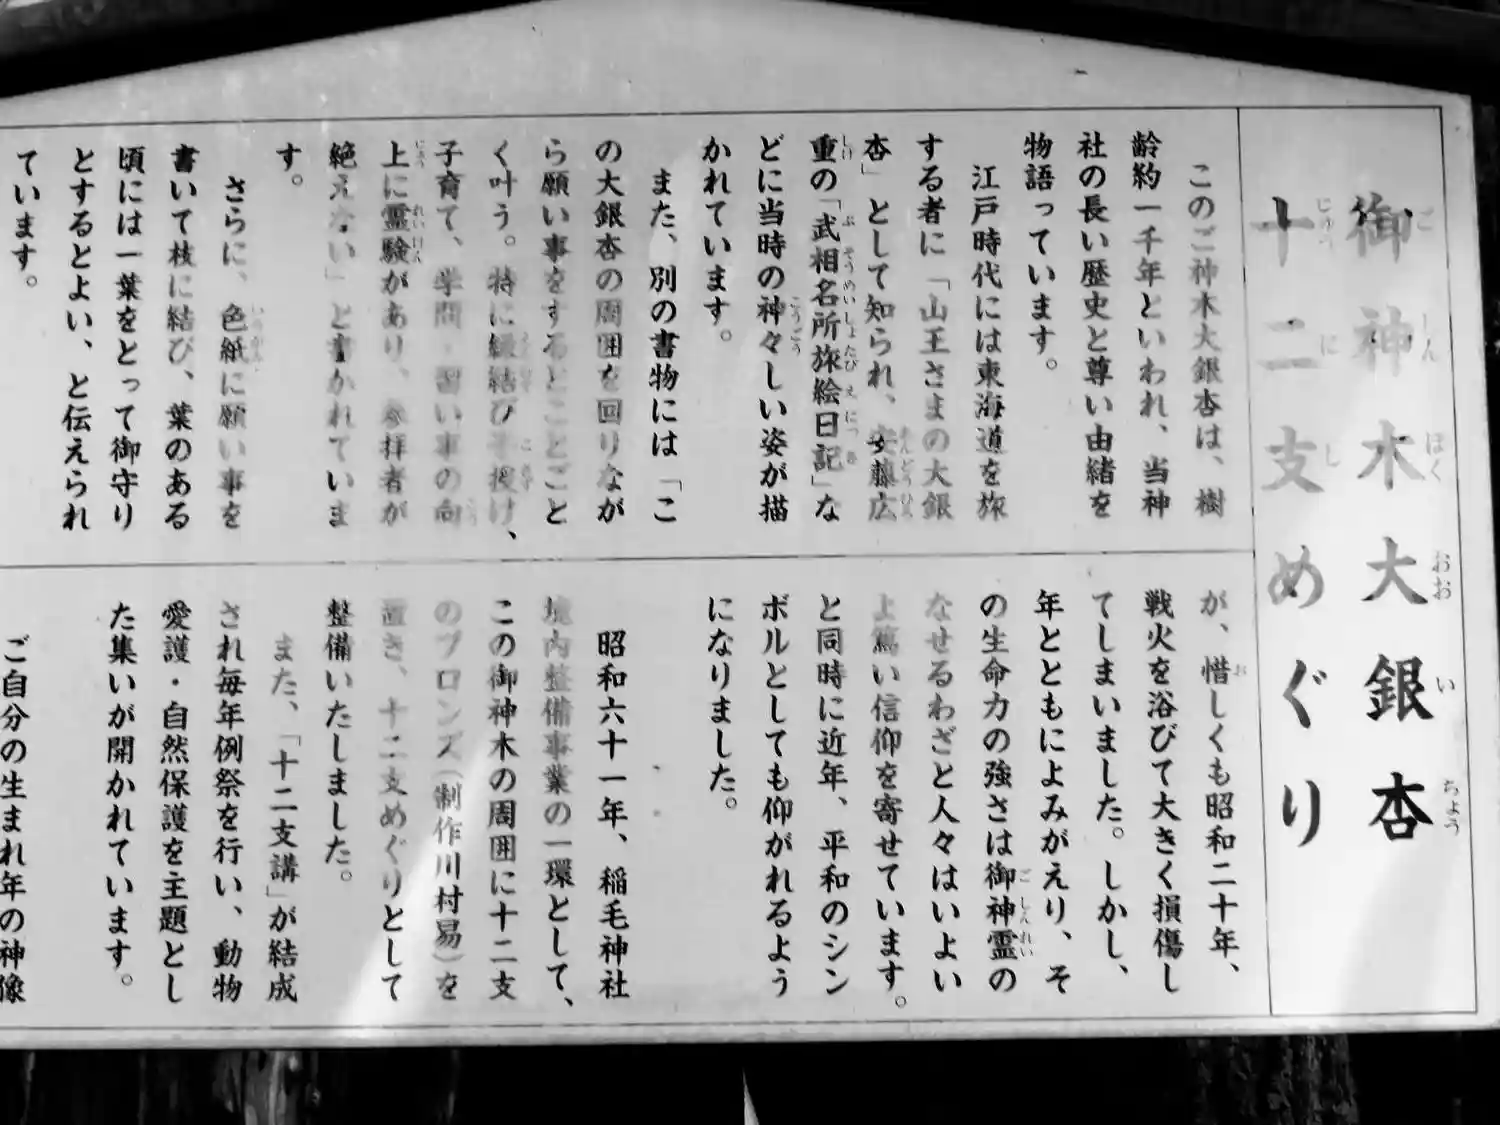 御神木大銀杏
十二支めぐり
このご神木大銀杏は、樹
齢約一千年といわれ、当神
社の長い歴史と尊い由緒を
物語っています。
江戸時代には東海道を旅
する者に「山王さまの大銀
杏」として知られ、安藤広
重の「武相名所旅絵日記」な
どに当時の神々しい姿が描
かれています。
また、別の書物には「こ
の大銀杏の周囲を回りなが
ら願い事をするとことごと
く叶う。特に縁結び・子授け、
子育て、学問・習い事の向
上に霊験があり、参拝者が
絶えない」と書かれていま
す。
さらに、色紙に願い事を
書いて枝に結び、葉のある
頃には一葉をとって御守り
とするとよい、と伝えられ
ています。
が、惜しくも昭和二十年、
戦火を浴びて大きく損傷し
てしまいました。しかし、
年とともによみがえり、そ
の生命力の強さは御神霊の
なせるわざと人々はいよい
よ篤い信仰を寄せています。
と同時に近年、平和のシン
ボルとしても仰がれるよう
になりました。
昭和六十一年、稲毛神社
境内整備事業の一環として、
この御神木の周囲に十二支
のブロンズ(制作川村易)を
置き、十二支めぐりとして
整備いたしました。
また、「十二支講」が結成
され毎年例祭を行い、動物
愛護・自然保護を主題とし
た集いが開かれています。
ご自分の生まれ年の神像